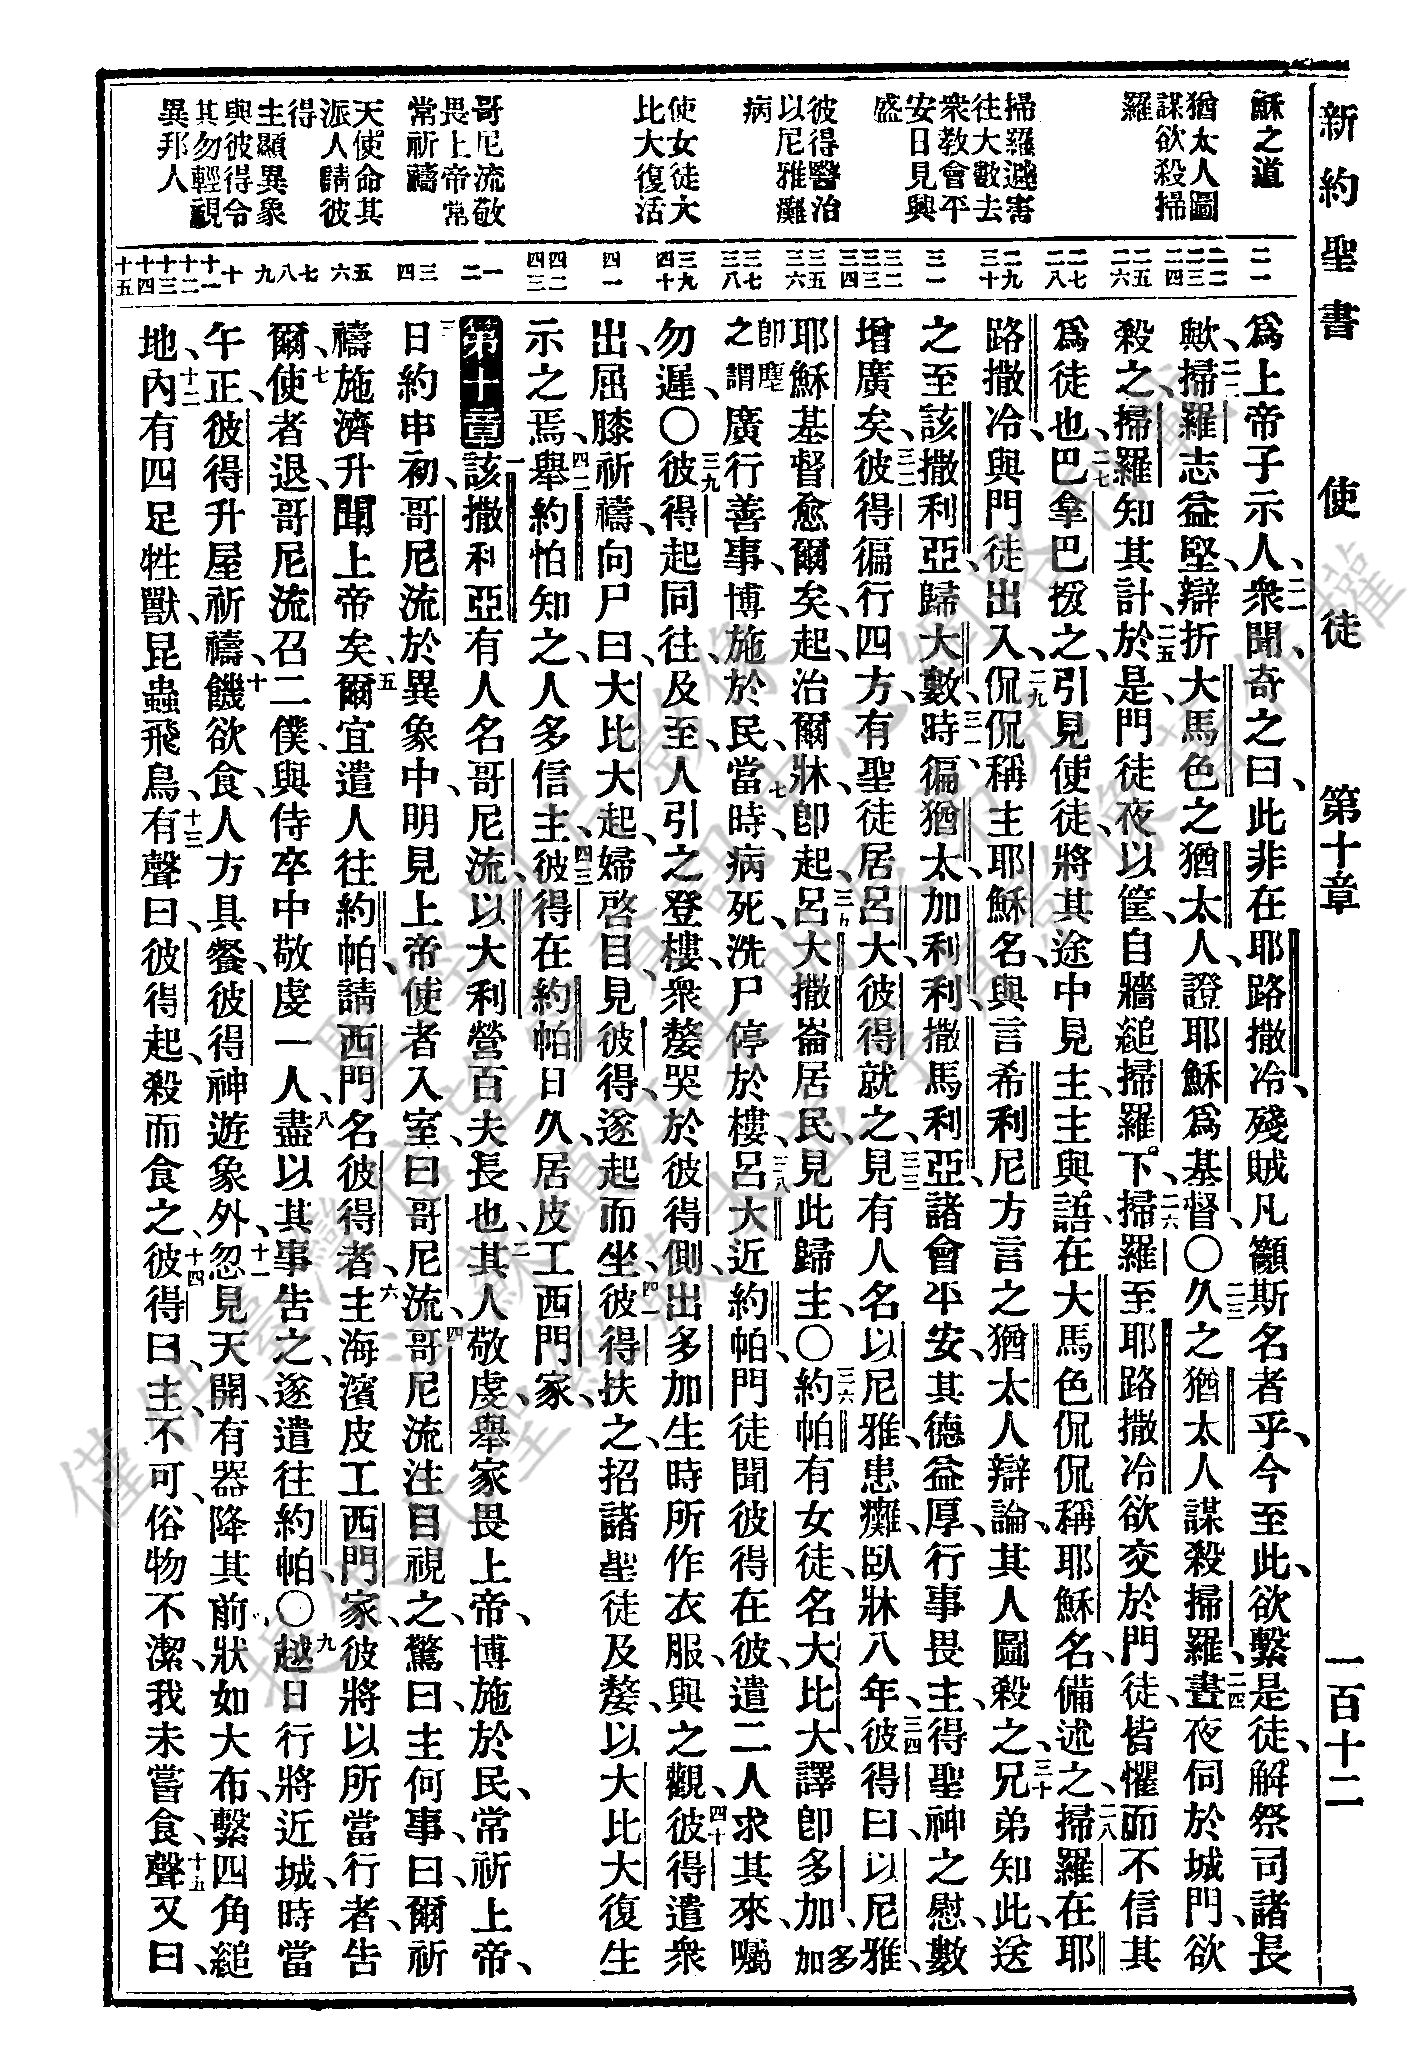 新約聖書 使徒 第十章 一百十二
穌之道
猶太人圖
謀欲殺掃
羅
掃羅避害
往大數去
衆教會平
安日見興
盛
彼得醫治
以尼雅癱
病
使女徒大
比大復活
哥尼流敬
畏上帝常
常祈禱
天使命其
派人請彼
得
主顯異象
與彼得令
其勿輕視
異邦人
二一
二二
二三
二四
二五
二六
二七
二八
二九
三十
三一
三二
三三
三四
三五
三六
三七
三八
三九
四十
四一
四二
四三
一
二
三
四
五
六
七
八
九
十
十一
十二
十三
十四
十五
爲上帝子示人、二一衆聞奇之曰、此非在耶路撒冷、殘賊凡籲斯名者乎、今至此、欲繫是徒、解祭司諸長
歟、二二掃羅志益堅、辯折大馬色之猶太人、證耶穌爲基督○二三久之猶太人謀殺掃羅、二四晝夜伺於城門、欲
殺之、掃羅知其計、二五於是門徒夜以筐、自牆縋掃羅下、二六掃羅至耶路撒冷欲交於門徒、皆懼而不信其
爲徒也、二七巴拿巴援之、引見使徒、將其途中見主、主與語、在大馬色侃侃稱耶穌名、備述之、二八掃羅在耶
路撒冷、與門徒出入、二九侃侃稱主耶穌名、與言希利尼方言之猶太人辯論、其人圖殺之、三十兄弟知此、送
之至該撒利亞、歸大數、三一時徧猶太加利利撒馬利亞、諸會平安、其德益厚、行事畏主、得聖神之慰、數
增廣矣、三二彼得徧行四方、有聖徒居呂大、彼得就之、三三見有人名以尼雅、患癱、臥牀八年、三四彼得曰、以尼雅、
耶穌基督愈爾矣、起治爾牀、卽起、三五呂大撒崙居民、見此歸主、○三六約帕有女徒、名大比大、譯卽多加、多加
卽麀之謂、廣行善事、博施於民、三七當時、病死、洗尸停於樓、三八呂大近約帕、門徒聞彼得在彼、遣二人求其來、囑
勿遲、○三九彼得起同往、及至、人引之登樓、衆嫠哭於彼得側、出多加生時所作衣服、與之觀、四十彼得遣衆
出、屈膝祈禱、向尸曰、大比大起、婦啓目、見彼得、遂起而坐、四一彼得扶之、招諸聖徒及嫠、以大比大復生
示之焉、四二舉約帕知之、人多信主、四三彼得在約帕日久、居皮工西門家、
第十章一該撒利亞有人名哥尼流、以大利營百夫長也、二其人敬虔、舉家畏上帝、博施於民、常祈上帝、
三日約申初、哥尼流於異象中、明見上帝使者入室、曰、哥尼流、四哥尼流注目視之、驚曰、主何事、曰、爾祈
禱施濟、升聞上帝矣、五爾宜遣人往約帕、請西門名彼得者、六主海濱皮工西門家、彼將以所當行者告
爾、七使者退、哥尼流召二僕、與侍卒中敬虔一人、八盡以其事告之、遂遣往約帕、○九越日行將近城、時當
午正、彼得升屋祈禱、十饑欲食、人方具餐、彼得神遊象外、十一忽見天開、有器降其前、狀如大布、繫四角縋
地、十二內有四足牲獸、昆蟲飛鳥、十三有聲曰、彼得起、殺而食之、十四彼得曰、主、不可、俗物不潔、我未嘗食、十五聲又曰、